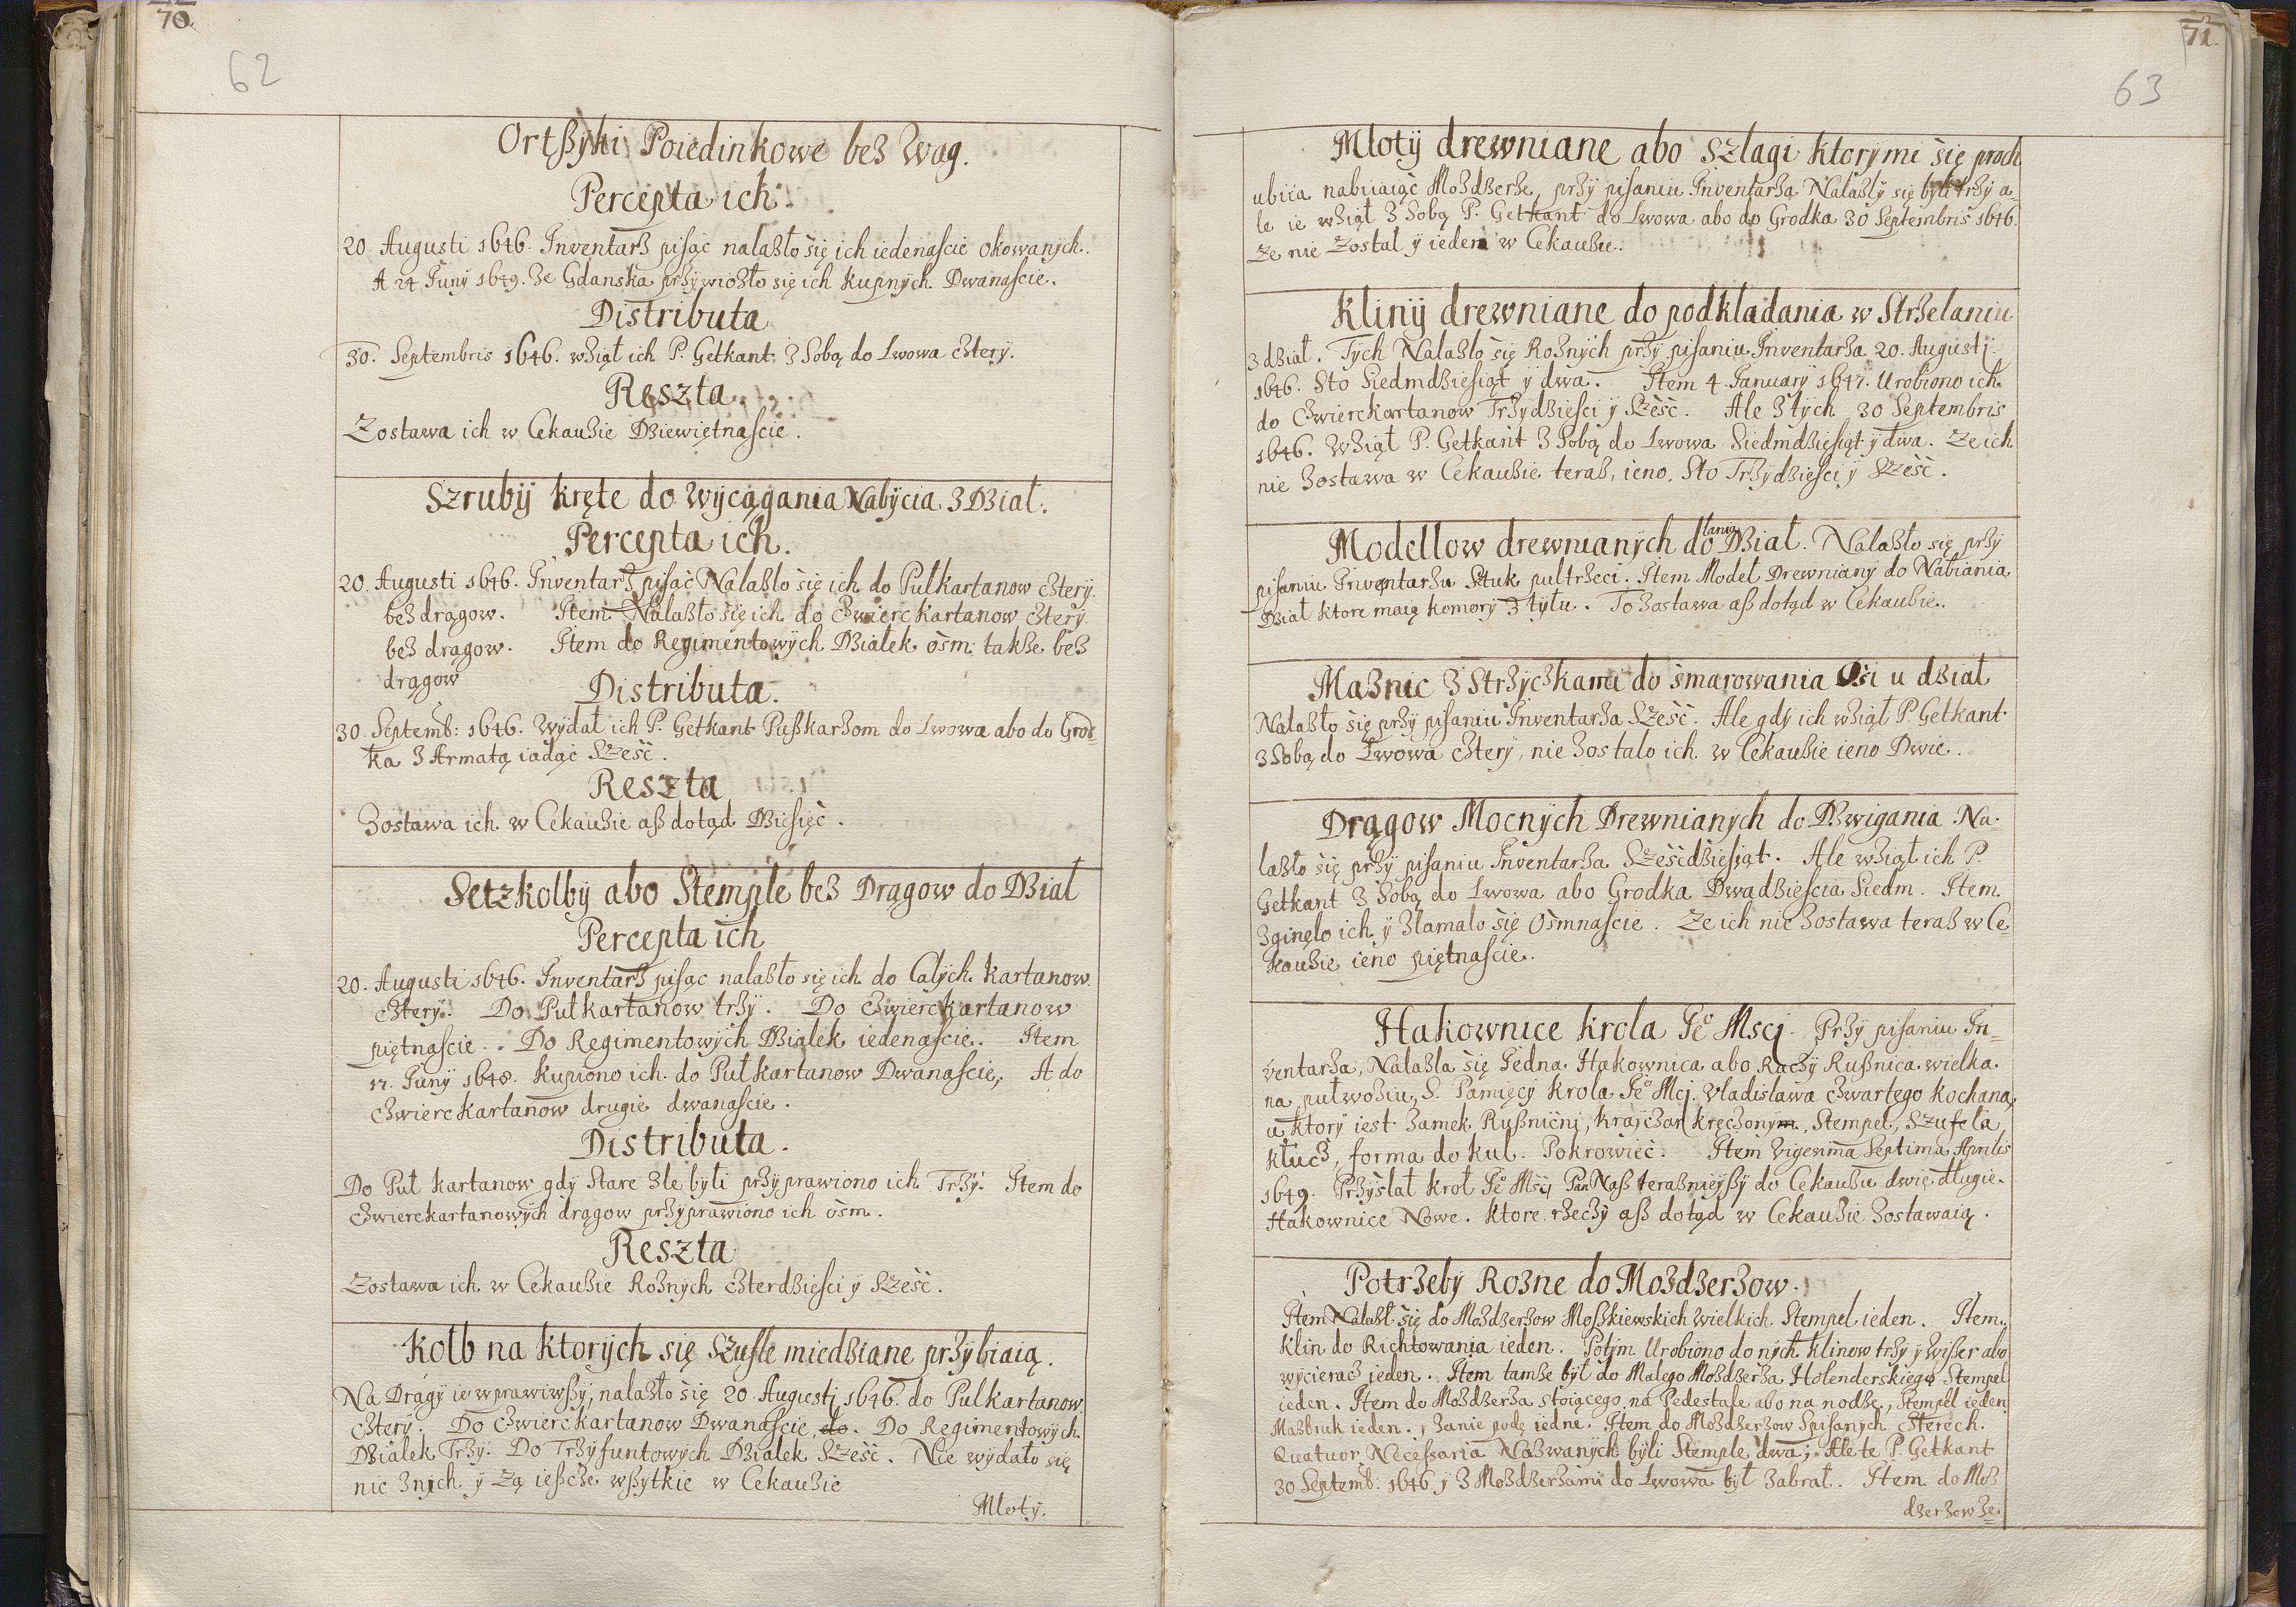 70.
62
Ortßyki Poiedinkowe bez Wag.
Percepta ich.
20. Augusti 1646. Inventarz pisąc nalazło się ich iedenascie okowanych.
A 24 Juny 1649. Ze Gdanska przywiozło się ich kupnych Dwanascie.
Distributa
30. Septembris 1646. wziąt ich P. Getkant z sobą do Lwowa cztery.
Reszta.
Zostawa ich w Cekauzie Dziewiętnascie.
Szruby kręte do Wycągania Nabycia z Dział.
Percepta ich.
20. Augusti 1646. Inventarz pisąc Nalazło się ich do Pułkartanow cztery.
bez drągow. Item Nalazło się ich do Cwierckartanow cztery
bez drągow. Item do Regimentowych Działek osm także bez
drągow
Distributa.
30. Septemb: 1646. Wydał ich P. Getkant Pußkarzom do Lwowa abo do Grod=
ka z Armatą iadąc Szesc.
Reszta
Zostawa ich w Cekauzie aß dotąd Dziesięc.
Setzkolby abo Stemple bez Drągow do Dział
Percepta ich
20. Augusti 1646. Inventarz pisąc nalazło się ich do Całych Kartanow
cztery. Do Pułkartanow trzy. Do Cwierckartanow
piętnascie. Do Regimentowych Działek iedenascie. Item
17. Juny 1648. kupiono ich do Pułkartanow Dwanascie, A do
Cwierckartanow drugie dwanascie.
Distributa.
Do Puł kartanow gdy stare złe byli przyprawiono ich Trzy. Item do
Cwierckartanowych drągow przyprawiono ich osm.
Reszta
Zostawa ich w Cekauzie Roznych czterdziesci y Szesc.
Kolb na ktorych się Szufle miedziane przybiaią.
Na Drągy ie wprawiwßy, nalazło się 20. Augusti 1646. do Pulkartanow
cztery. Do Cwierckartanow Dwanascie, do. Do Regimentowych
Działek Trzy. Do Trzyfuntowych Działek Szesc. Nie wydało się
nic znych y Zą ießcze wßytkie w Cekauzie
Młoty.
71.
63
Młoty drewniane abo Szlagi ktorymi się proch
ubiia nabiiaiąc Mozdzerze, przy pisaniu Inventarza Nalazły się byli trzy a-
le ie wziął z sobą P. Getkant do Lwowa abo do Grodka 30 Septembris 1646.
Ze nie został y ieden w Cekauzie.
Kliny drewniane do podkładania w Strzelaniu
z dział. Tych Nalazło się Roznych przy pisaniu Inventarza 20. Augusti
1646. Sto Siedmdziesiąt y dwa. Item 4. January 1647. Urobiono ich
do Cwierckartanow Trzydziesci y Szesc. Ale z tych 30 Septembris
1646. Wziął P. Getkant z sobą do Lwowa Siedmdziesiąt y dwa. Ze ich
nie zostawa w Cekauzie teraz, ieno, Sto Trzydziesci y Szesc.
Modellow drewnianych do lania Dział. Nalazło się przy
pisaniu Inventarza Sztuk pułtrzeci. Item Model Drewniany do Nabiania
Dział ktore maią komory z tyłu. To zostawa aß dotąd w Cekauzie.
Maznic z Strzyczkami do smarowania Osi u dział
Nalazło się przy pisaniu Inventarza Szesc. Ale gdy ich wziął P. Getkant
z sobą do Lwowa cztery, nie zostalo ich w Cekauzie ieno Dwie.
Drągow Mocnych Drewnianych do Dzwigania Na-
lazło się przy pisaniu Inventarza Szescdziesiąt. Ale wziął ich P.
Getkant z sobą do Lwowa abo Grodka Dwądziescia Siedm. Item
zginęlo ich y złamalo się Osmnascie. Ze ich nie zostawa teraz w Ce-
kauzie ieno piętnascie.
Hakownice Krola Jeo Msci. Przy pisaniu In=
ventarza, Nalazła się Jedna Hakownica abo Raczy Rußnica wielka
na pułwoziu, S. Pamięcy Krola Jeo Mci. Vladislawa Czwartego kochana,
u ktory iest zamek Rußnicni, krayczar kręczonym, Stempel, Szufela,
klucz, forma do kul. Pokrowiec. Item Vigesima Septima Aprilis
1649. Przysłał krol Jeo Msci Pan Naß teraznieyßy do Cekauzu dwie długie
Hakownice Nowe. Ktore rzeczy aß dotąd w Cekauzie zostawaią.
Potrzeby Rozne do Mozdzerzow.
Item Nalazł się do Mozdzerzow Moßkiewskich Wielkich Stempel ieden. Item
Klin do Richtowania ieden. Potym Urobiono do nych klinow trzy y wißer abo
wycieracz jeden. Item tamze był do Malego Mozdzerza Holenderskiego Stempel
ieden. Item do Mozdzerza stoiącego na Pedestale abo na nodze, Stempel ieden
Mazbruk ieden. y Panie podę iedne. Item do Mozdzerzow Spisanych czterech
Quatuor Necessaria Nazwanych byli Stemple dwa; Ale te P. Getkant
30 Septemb: 1646 y z Mozdzerzami do Lwowa był zabrał. Item do Moz
dzerzow Ze=